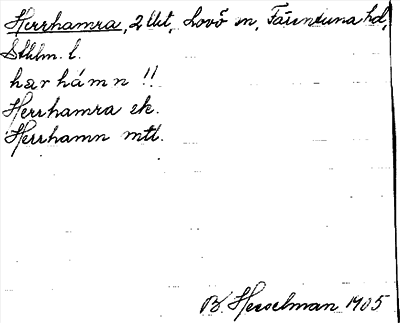 Herrhamra, 2 Ukt, Lovö sn, Färentuna hd,
Sthlm. l.
harhámn !!
Herrhamra ek.
Herrhamn mtl.
B. Hesselman 1905